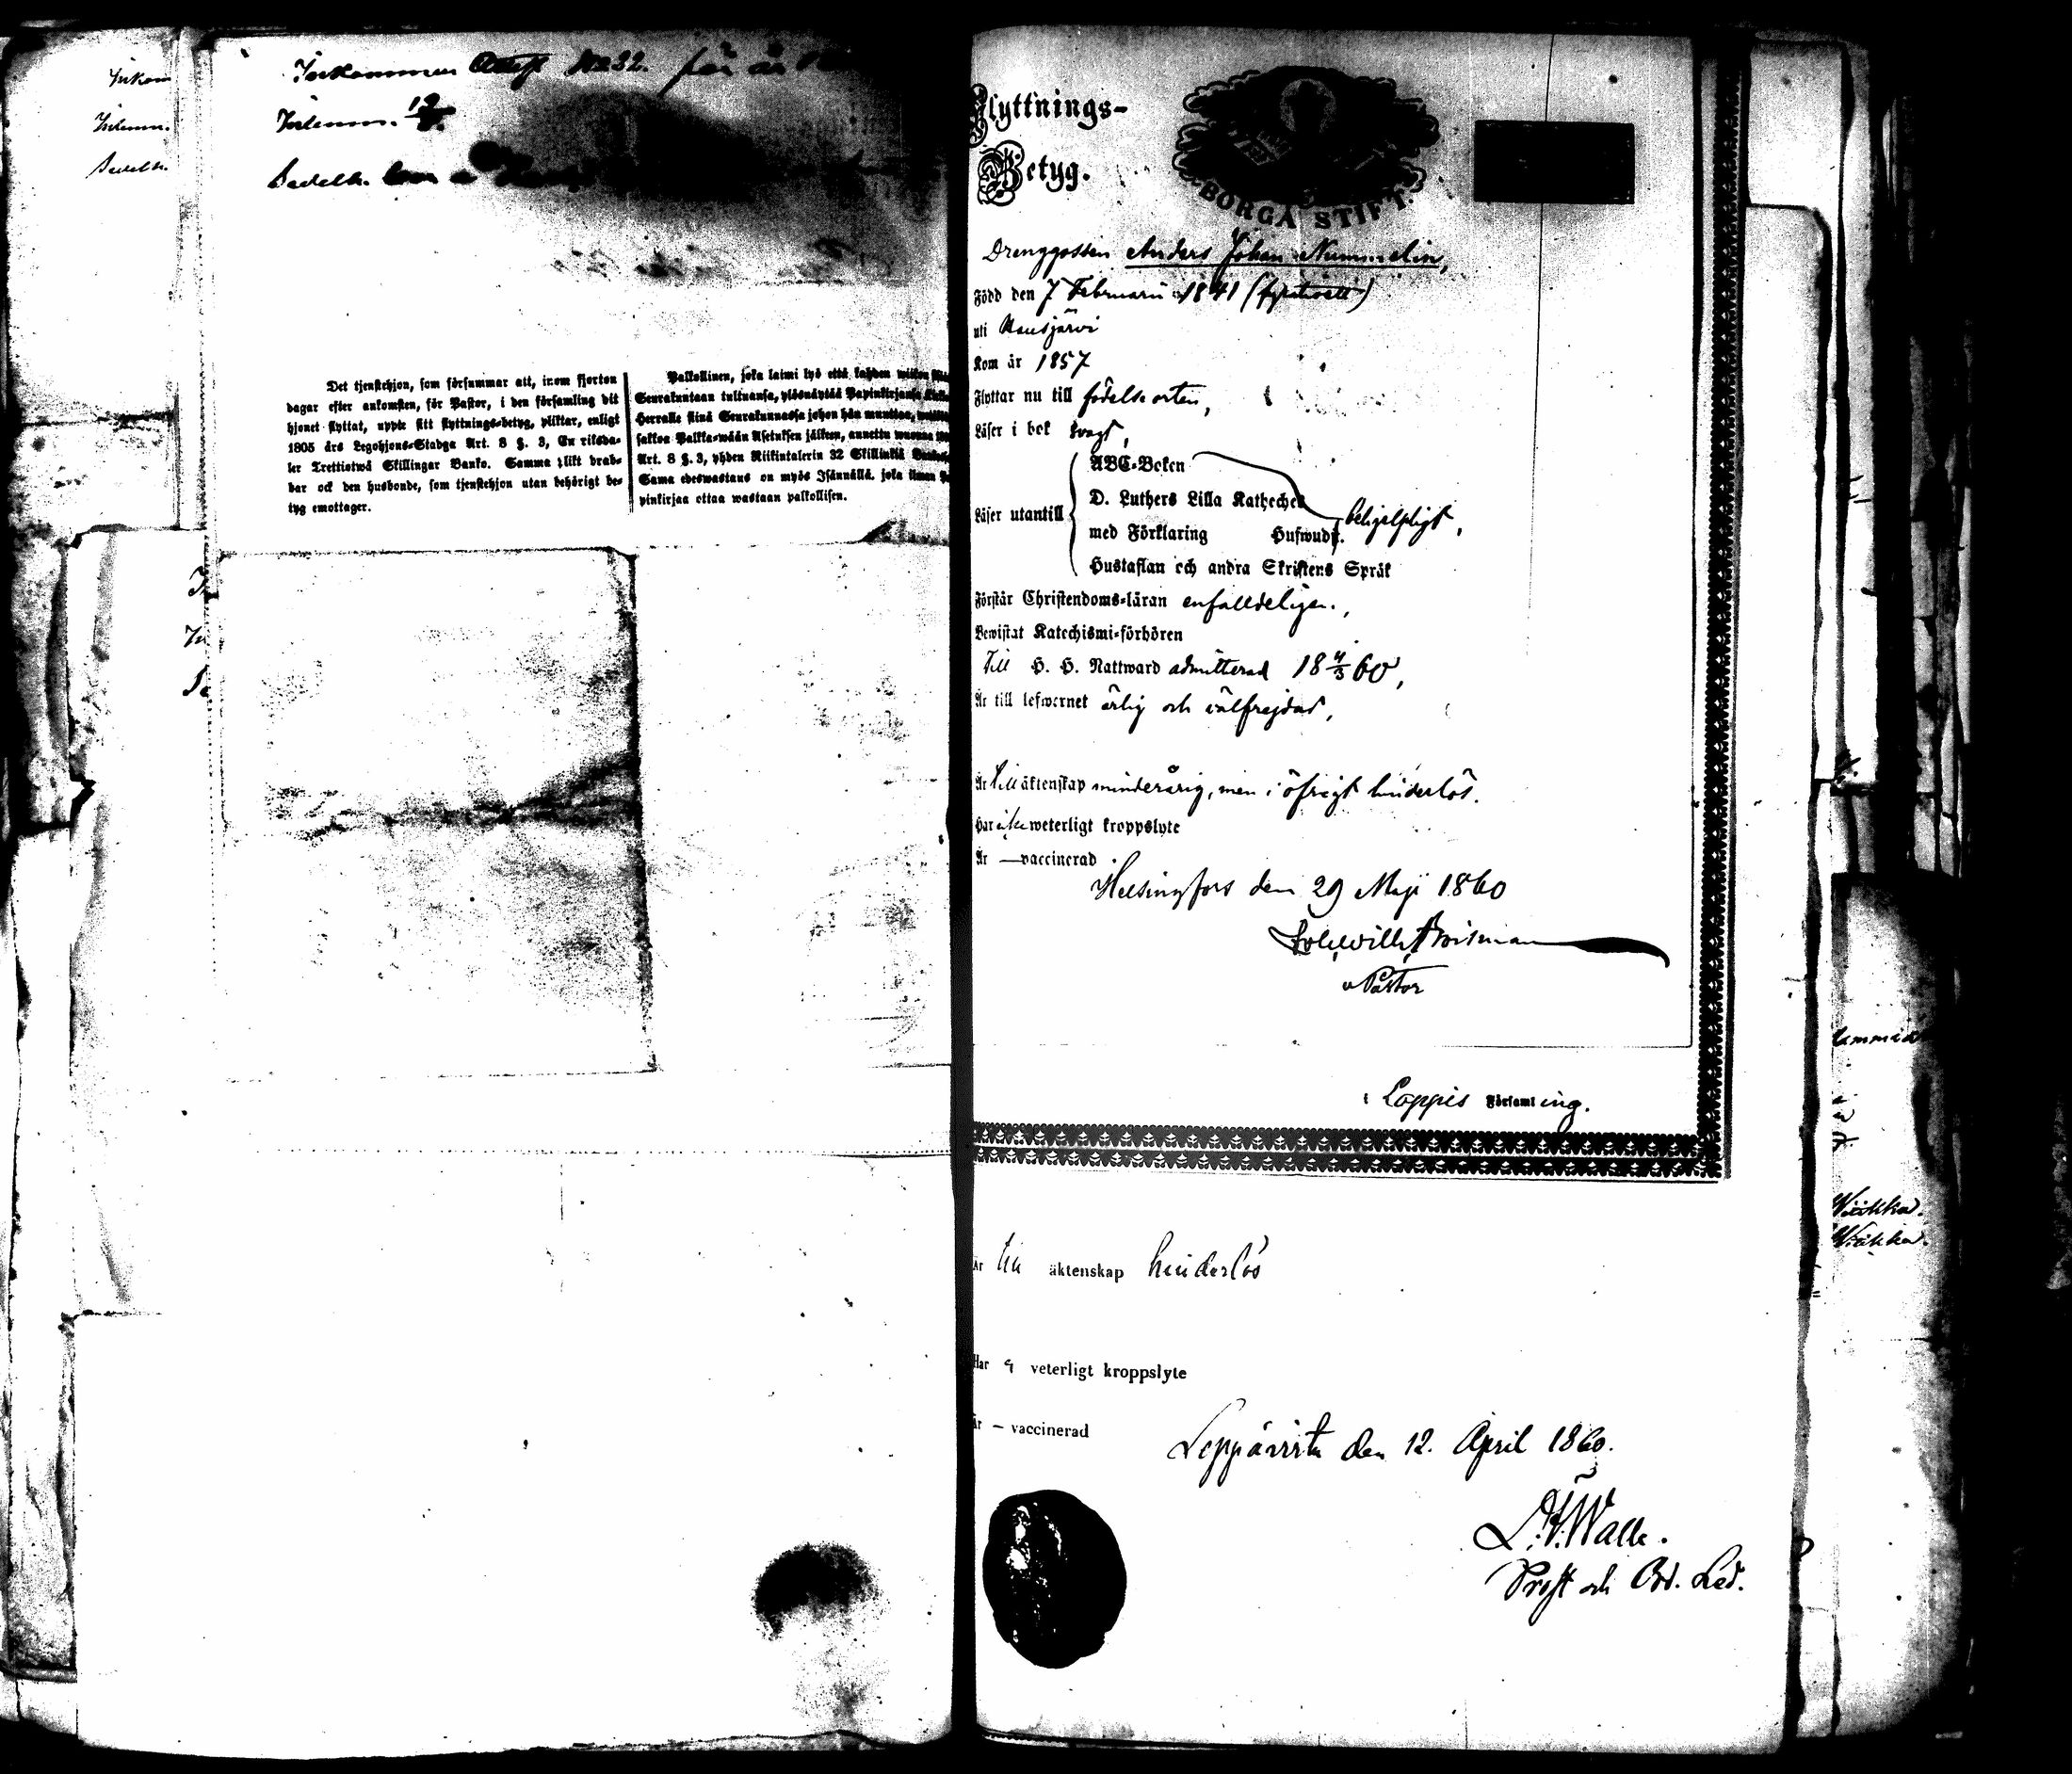 Inkom
Inlemn.
Sedeln.
Inkommen Attest No 32. för år
Inlemn. 19/8.
Sedeln.
Det tjenstehjon, som försummar att, inom fjorton
dagar efter ankomsten, för Pastor, i den församling dit
hjonet flyttat, uppte sitt flyttnings-betyg, pliktar, enligt
1805 års Legohjons-Stadga Art. 8 §. 3, En riksda-
ler Trettiotwå Skillingar Banko. Samma plikt drab-
bar ock den husbonde, som tjenstehjon utan behörigt be-
tyg emottager.
Palkollinen, joka laimi lyö että kahden wiikon
Seurakuntaan tultuansa, ylösnäyttää Papinkirjansa
Herralle siinä Seurakunnassa johon hän muuttaa,
sakkoa Palkka-wään Asetuksen jälkeen, annettu wuonna
Art. 8 §. 3, yhden Riikintalerin 32 Skillinkiä
Sama edeswastaus on myös Isännällä, joka ilman
pinkirjaa ottaa wastaan palkollisen.
Flyttnings-
Betyg.
BORGÅ STIFT.
Drenggossen Anders Johan Nummelin,
Född den 7 Februarii 1841 (fyratioett)
uti Hausjärvi
Kom år 1857
Flyttar nu till födelseorten,
Läser i bok svagt,
ABC-Boken
D. Luthers Lilla Katheches
Läser utantill behjelpligt,
med Förklaring Hufwudst.
Hustaflan och andra Skriftens Språk
Förstår Christendoms-läran enfalldeligen.,
Bewistat Katechismi-förhören
Till H. H. Nattward admitterad 18 4/3 60,
Är till lefwernet ärlig och välfrejdad,
Är till äktenskap minderårig, men i öfrigt hinderlös.
Har icke weterligt kroppslyte
Är — vaccinerad
Helsingfors den 29 Maji 1860
Pastor
Loppis Församling.
Är till äktenskap hinderlös
Har ej veterligt kroppslyte
Är – vaccinerad
Leppävirta den 12. April 1860.
Walle.
Prost och Ord. Led.
Wiikka.
Wiikka.